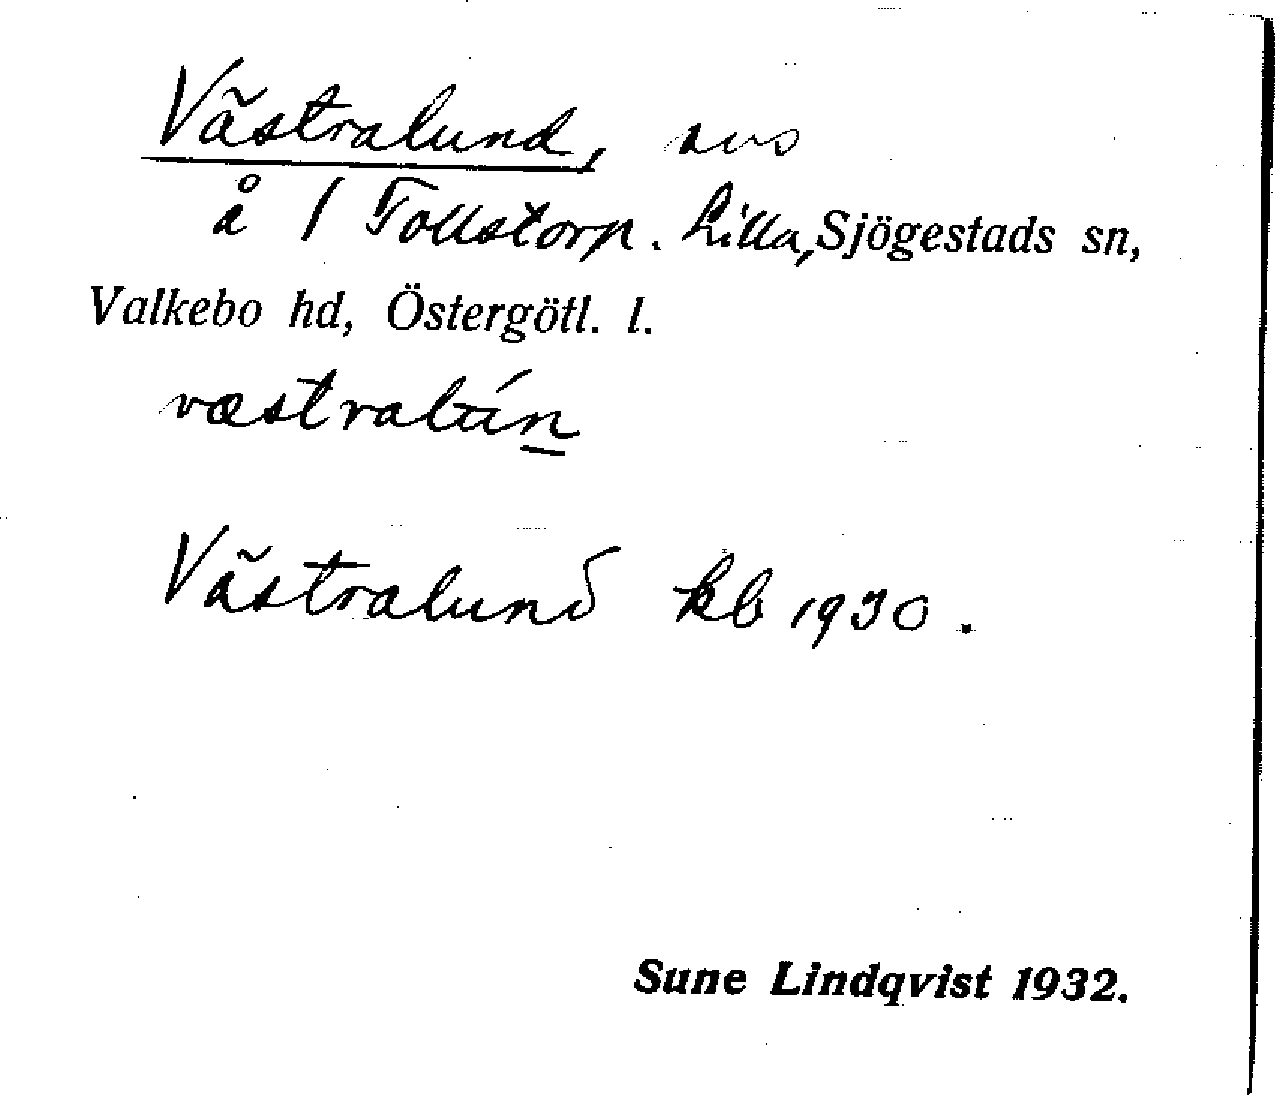 Västralund, avs
å 1 Tollstorp. Lilla, Sjögestads sn,
Valkebo hd, Östergötl. l.
væstralún
Västralund kb 1930.
Sune Lindqvist 1932.